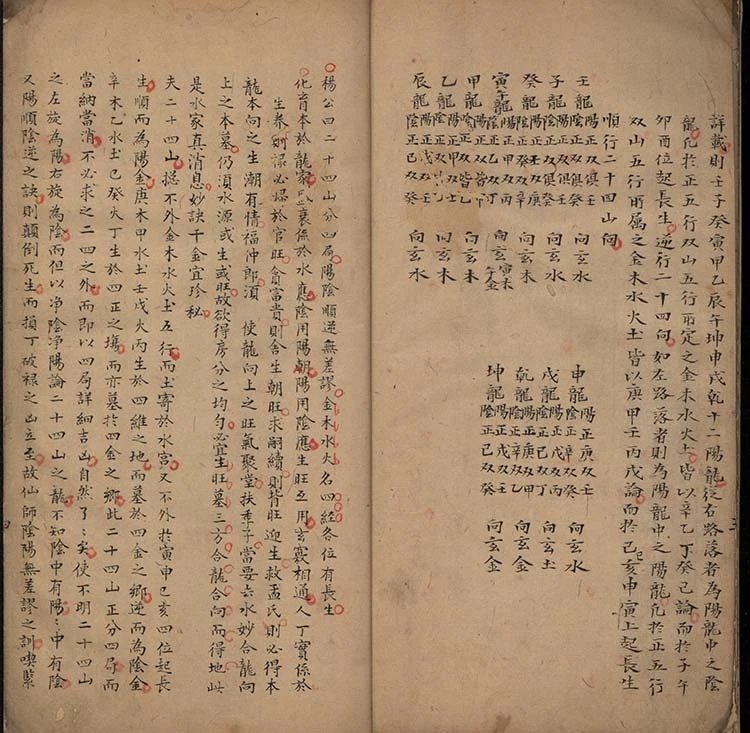 詳載則壬子癸寅甲乙辰午坤申戌乾十二陽龍從右路落者為陽龍中之陰
龍凡於正五行双山五行所定之金木水火土皆以辛乙丁癸己論而於子午
卯酉位起長生逆行二十四向如左路落者則為陽龍中之陽龍凡於正五行
双山五行所属之金木水火土皆以庚甲壬丙戊論而於己亥申寅上起長生
順行二十四山向
壬龍陽正双壬 向玄水
子龍陽正双壬陰正双癸 向玄木
癸龍陽正壬双庚陰正癸双辛 向玄木
甲龍 向玄木
乙龍陽正甲双壬 向玄木
辰龍陽正戊双壬陰正己双癸 向玄水
申龍陽正庚双壬陰正辛双癸 向玄水
戌龍陽正戊双丙陰正己双丁 向玄土
乾龍陽正庚双甲陰正辛双乙 向玄金
坤龍陽正戊双壬陰正己双癸 向玄金
楊公四二十四山分四局陽陰順逆無差謬金木水火名四經各位有長生
化育本於龍家盛衰係於水應陰用陽朝陽用陰應生旺互用玄竅相通人丁實係於
生養則誤必爆於官旺貪富貴則舍生朝旺求嗣續則背旺迎生救孟氏則必得本
龍本向之生潮有情福仲郎須使龍向上之旺氣聚堂扶季子當要去水妙合龍向
上之本墓仍須水源或生或旺故欲得房分之均勻必宜生旺墓三方合龍合向而得地此
是水家真消息妙訣千金宜珍秘
夫二十四山總不外金木水火土五行而土寄於水宮又不外於寅申巳亥四位起長
生順而為陽金庚木甲水土壬戊火丙生於四維之地而墓於四金之鄉逆而為陰金
辛木乙水土己癸火丁生於四正之塲而亦墓於四金之鄉此二十四山正分四局而
當納當消不必求之二四之外而即以四局詳細吉凶自然了〻矣使不明二十四山
之左旋為陽右旋為陰而但以净陰净陽論二十四山之龍不知陰中有陽〻中有陰
又陽順陰逆之訣則顛倒死生而損丁破祿之凶立至故仙師陰陽無差謬之訓喫緊